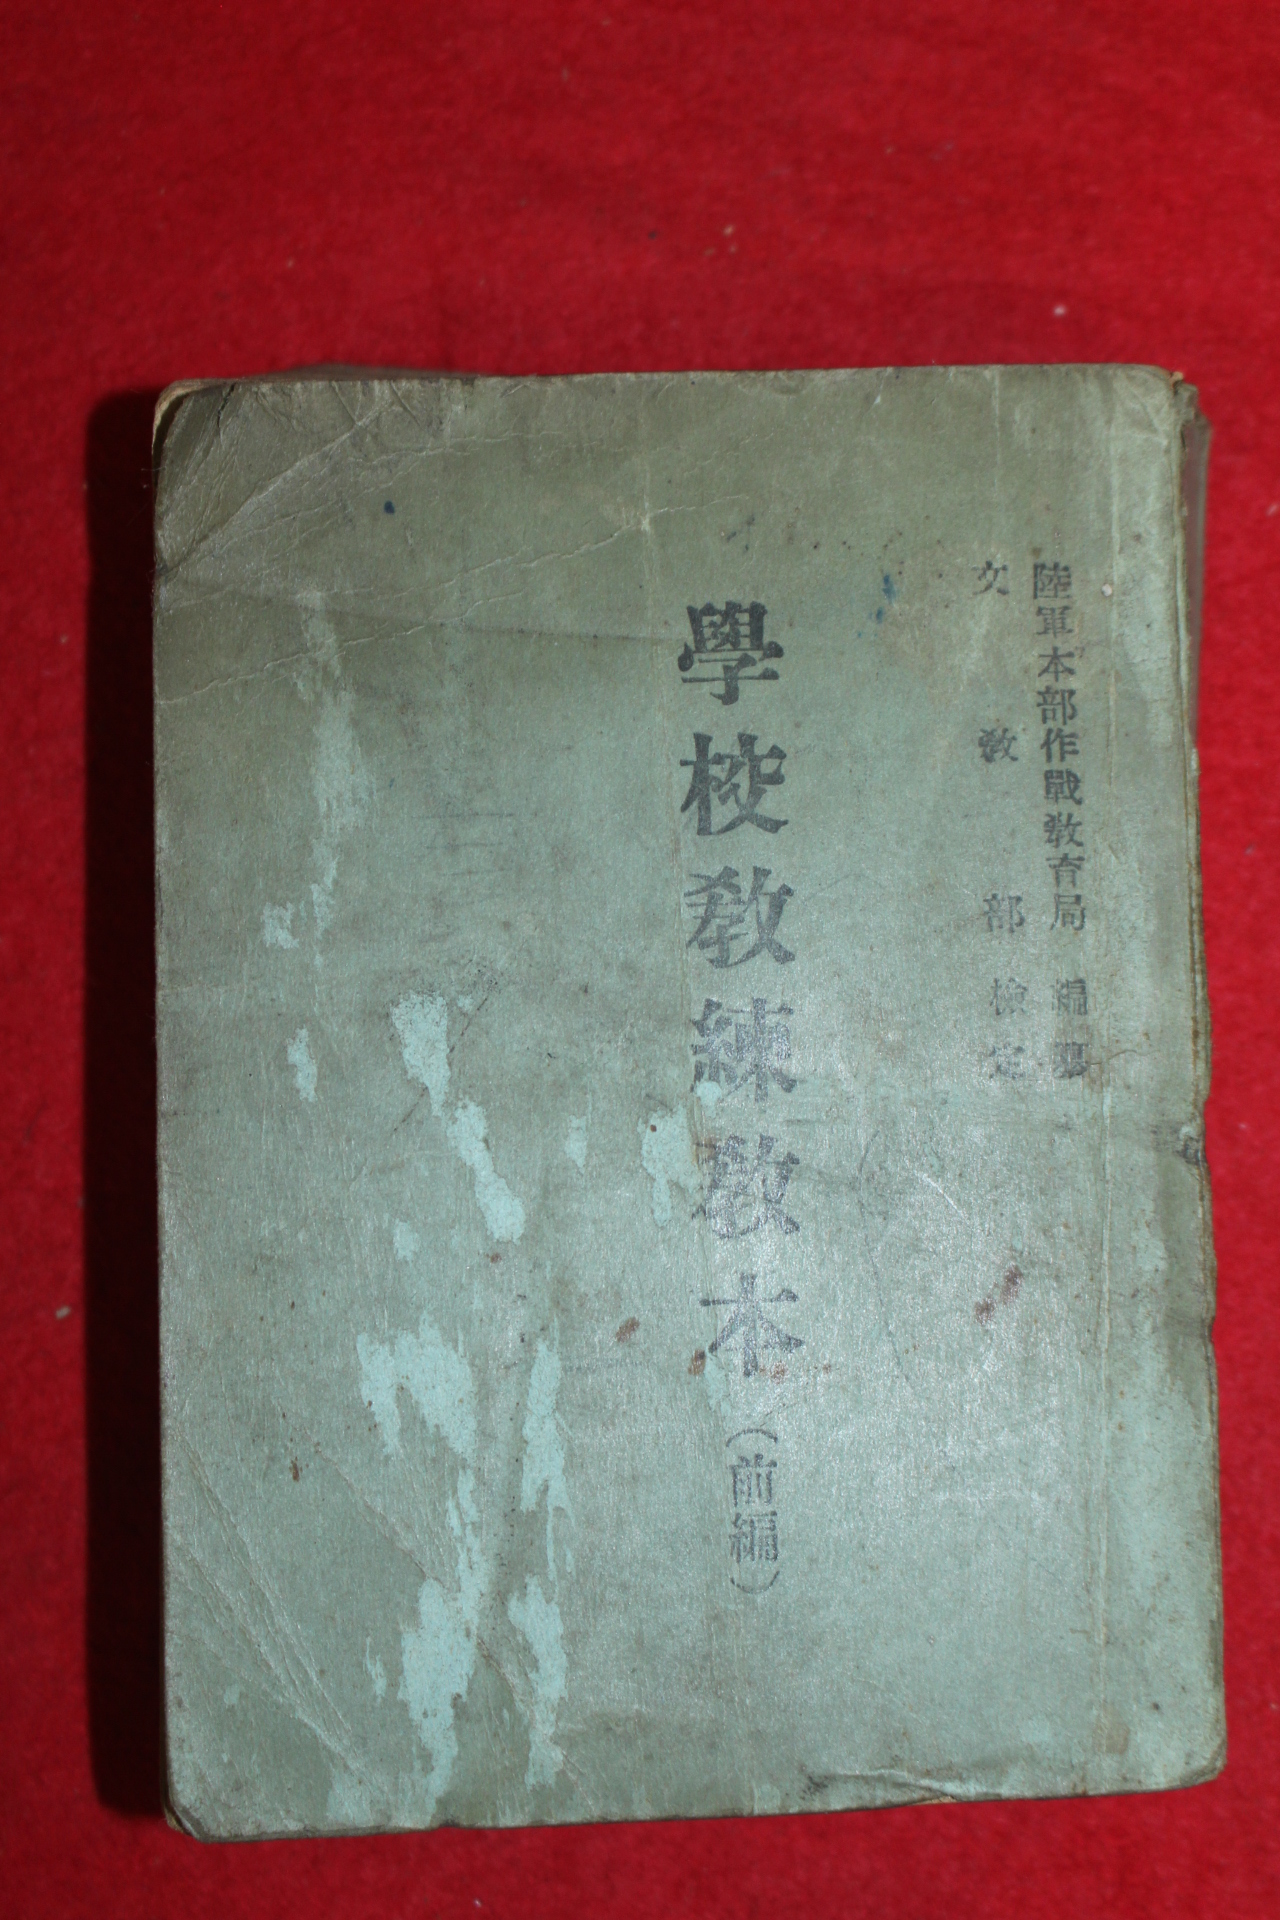 陸軍本部作戰敎育局 編纂
文敎部檢定
學校敎練敎本（前編）